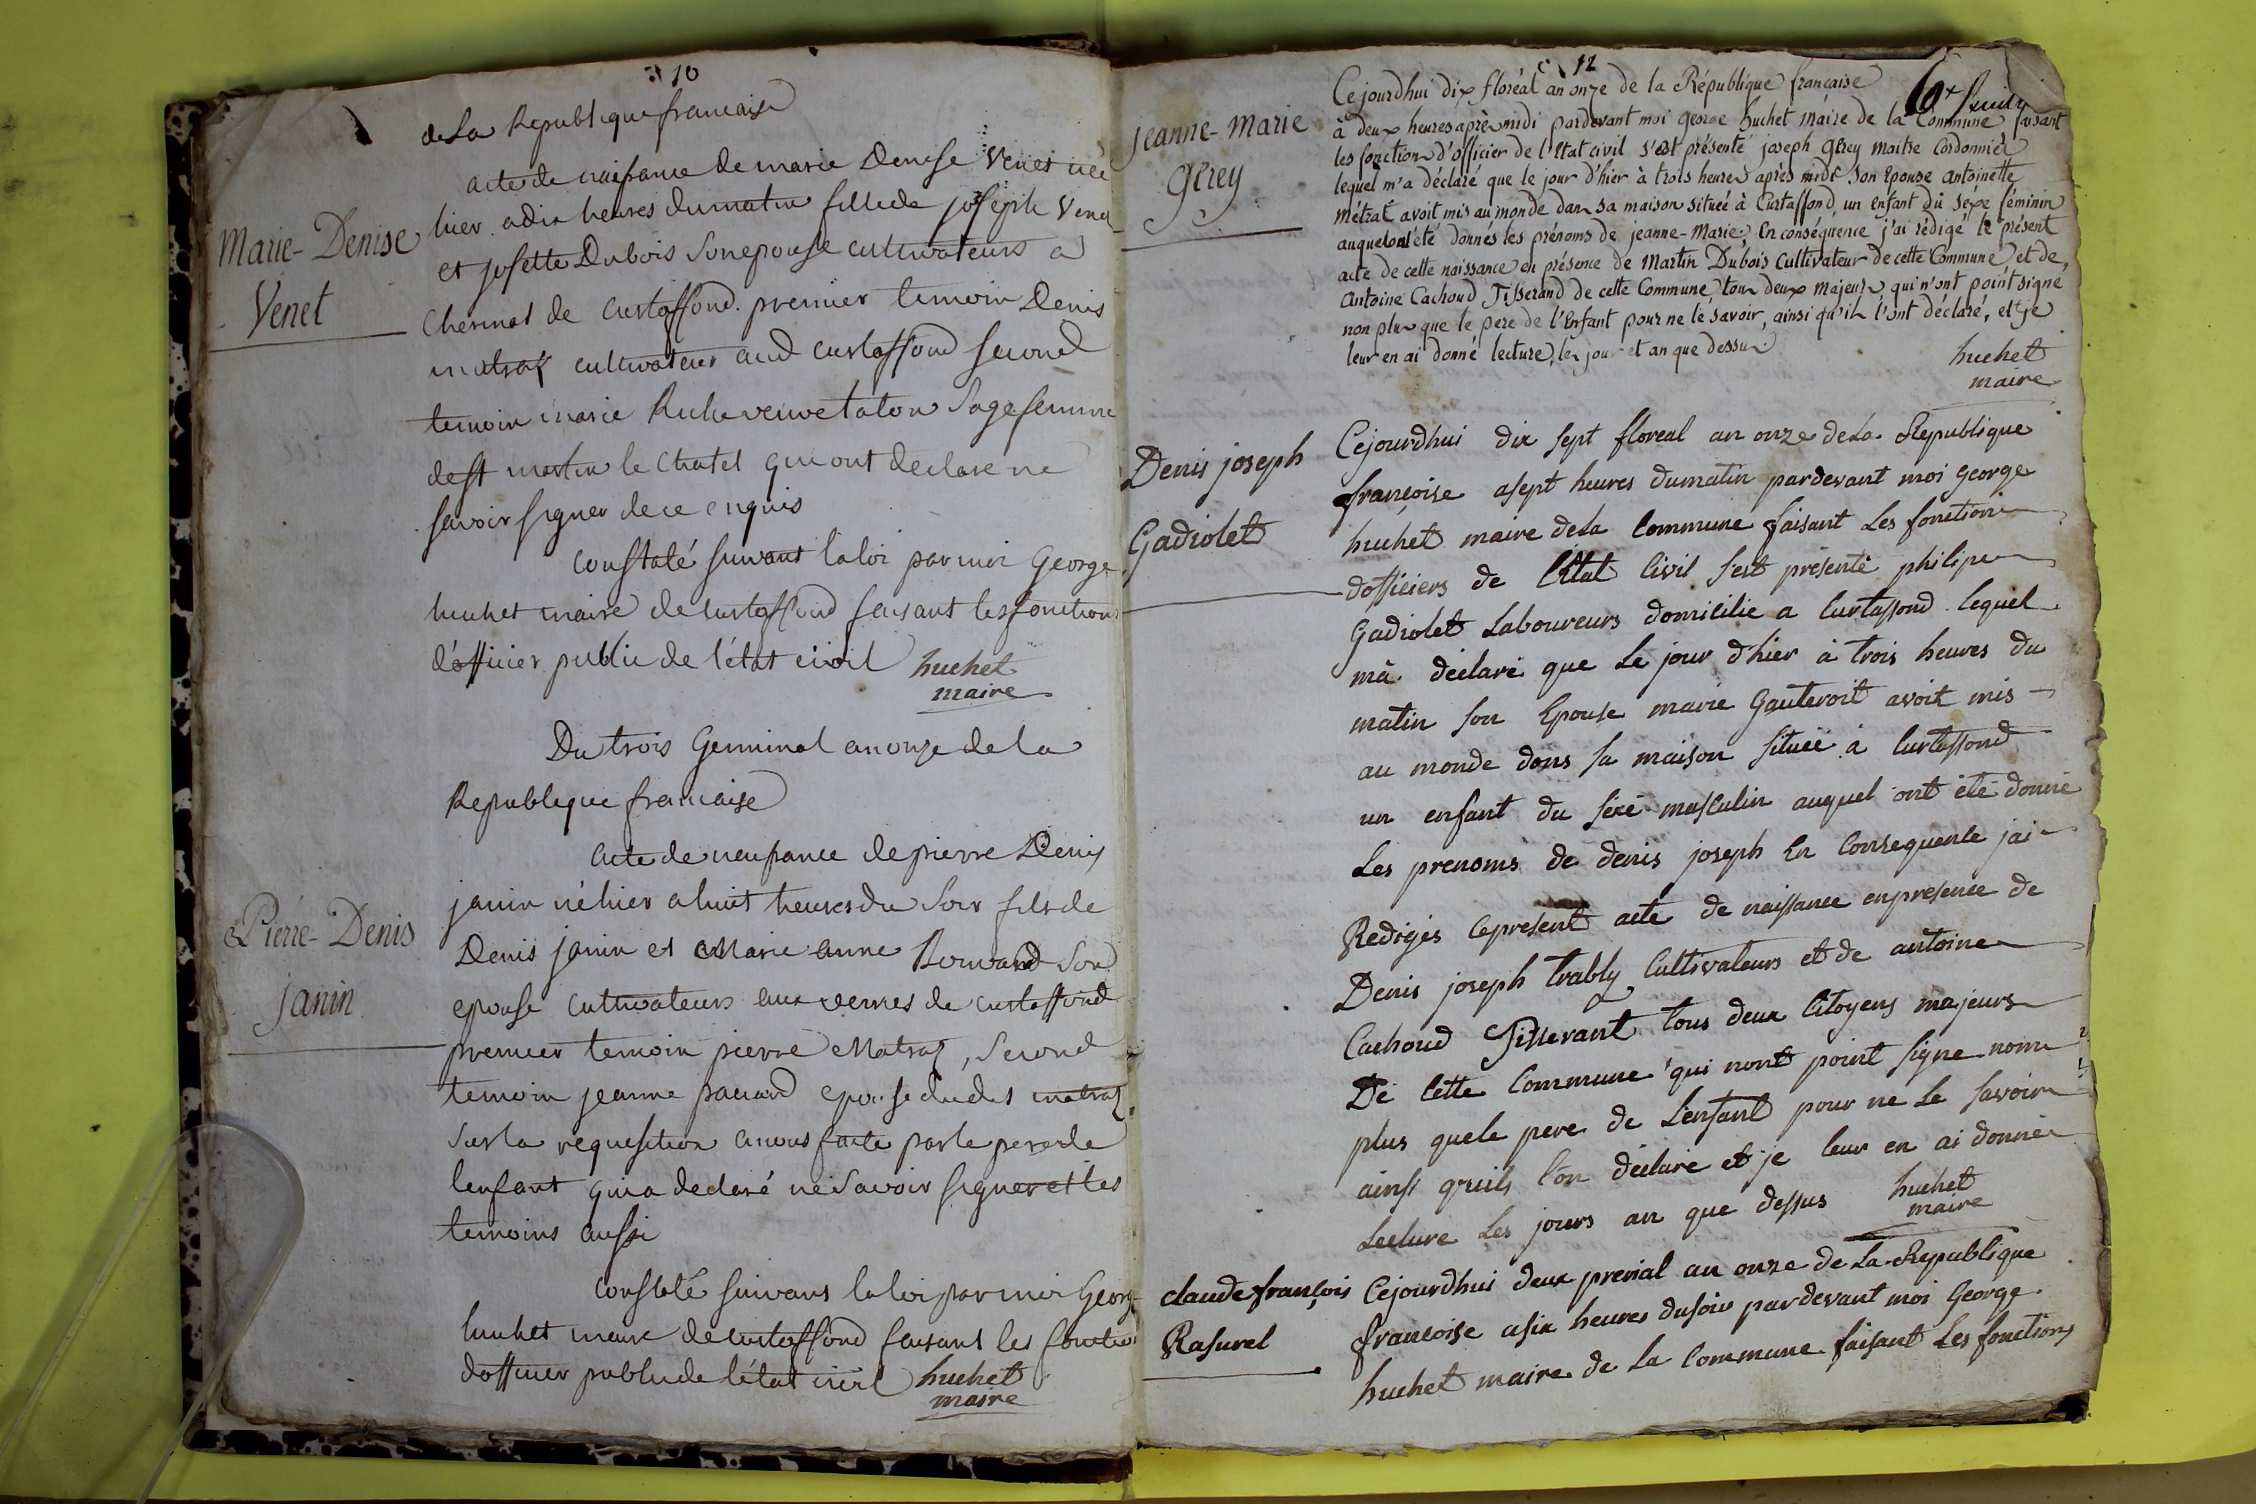 10
de La Republique francaise
Marie-Denise
Venet
acte de naissance de marie Denise Venet née
hier a dix heures du matin fille de joseph Venet
et josette Dubois son epouse cultivateurs a
de Curtaffond. premier temoin Denis
matraz cultivateur aud curtaffond second
temoin marie Riche veuve taton Sage femme
de st martin le Chatel qui ont declare ne
savoir signer de ce enquis
Constaté suivant la loi par moi George
huchet maire de curtaffond faisant les fonctions
d'officier public de l'état civil huchet
maire
Du trois Germinal an onze de la
Republique francaise
Pierre-Denis
janin
acte de naissance de pierre Denis
janin né hier a huit heures du Soir fils de
Denis janin et Marie anne Son
epouse cultivateurs aux vernes de curtaffond
premier temoin pierre Matraz, Second
temoin jeanne epouse dudet matraz
Sur la requisition a nous faite par le pere de
lenfant qui a declaré ne Savoir signer et les
temoins aussi
Constaté suivant la loi par moi George
huchet maire de curtaffond faisant les fonctions
dofficier public de l'état civil huchet
maire
12
6e feuillet
jeanne-marie
Gerey
Cejourdhui dix floréal an onze de la République française
à deux heures après midi pardevant moi george huchet maire de la Commune faisant
les fonctions d'officier de l'Etat civil s'est présenté joseph Gerey maitre Cordonnier
lequel m'a déclaré que le jour d'hier à trois heures après midi Son Epouse antoinette
métrat avoit mis au monde dans sa maison située à Curtaffond, un enfant du séxe féminin
auquel ont été donnés les prénoms de jeanne-Marie, En conséquence j'ai rédigé le présent
acte de cette naissance en présence de Martin Dubois Cultivateur de cette Commune et de
Antoine Cachoud Tisserand de cette Commune, tous deux majeurs, qui n'ont point signé
non plus que le pere de l'Enfant pour ne le savoir, ainsi qu'ils l'ont déclaré, et je
leur en ai donné lecture, les jour et an que dessus
huchet
maire
Denis joseph
Gadiolet
Cejourdhui dix sept floreal an onze de La Republique
françoise a sept heures du matin pardevant moi George
huchet maire de La Commune faisant Les fonctions
dofficiers de l'Etat Civil s'est présenté philipe
Gadiolet Laboureurs domicilie a Curtaffond lequel
mà déclaré que Le jour dhier à trois heures du
matin son Epouse marie Gauteroit avoit mis
au monde dans sa maison située à Curtaffond
un enfant du sexe masculin auquel ont été donné
Les prenoms de denis joseph En Consequence jai
Redigés le present acte de naissance en presence de
Denis joseph trably Cultivateurs et de antoine
Cachoud Tisserant tous deux Citoyens majeurs
De Cette Commune qui nont point signe nom
plus que le pere de L'enfant pour ne Le savoir
ainsi quils l'on déclaré et je leur en ai donnée
Lecture Les jours an que dessus huchet
maire
claude françois
Rasurel
Cejourdhui deux prerial an onze de La Republique
françoise a six heures du soir pardevant moi George
huchet maire de La Commune faisant Les fonctions